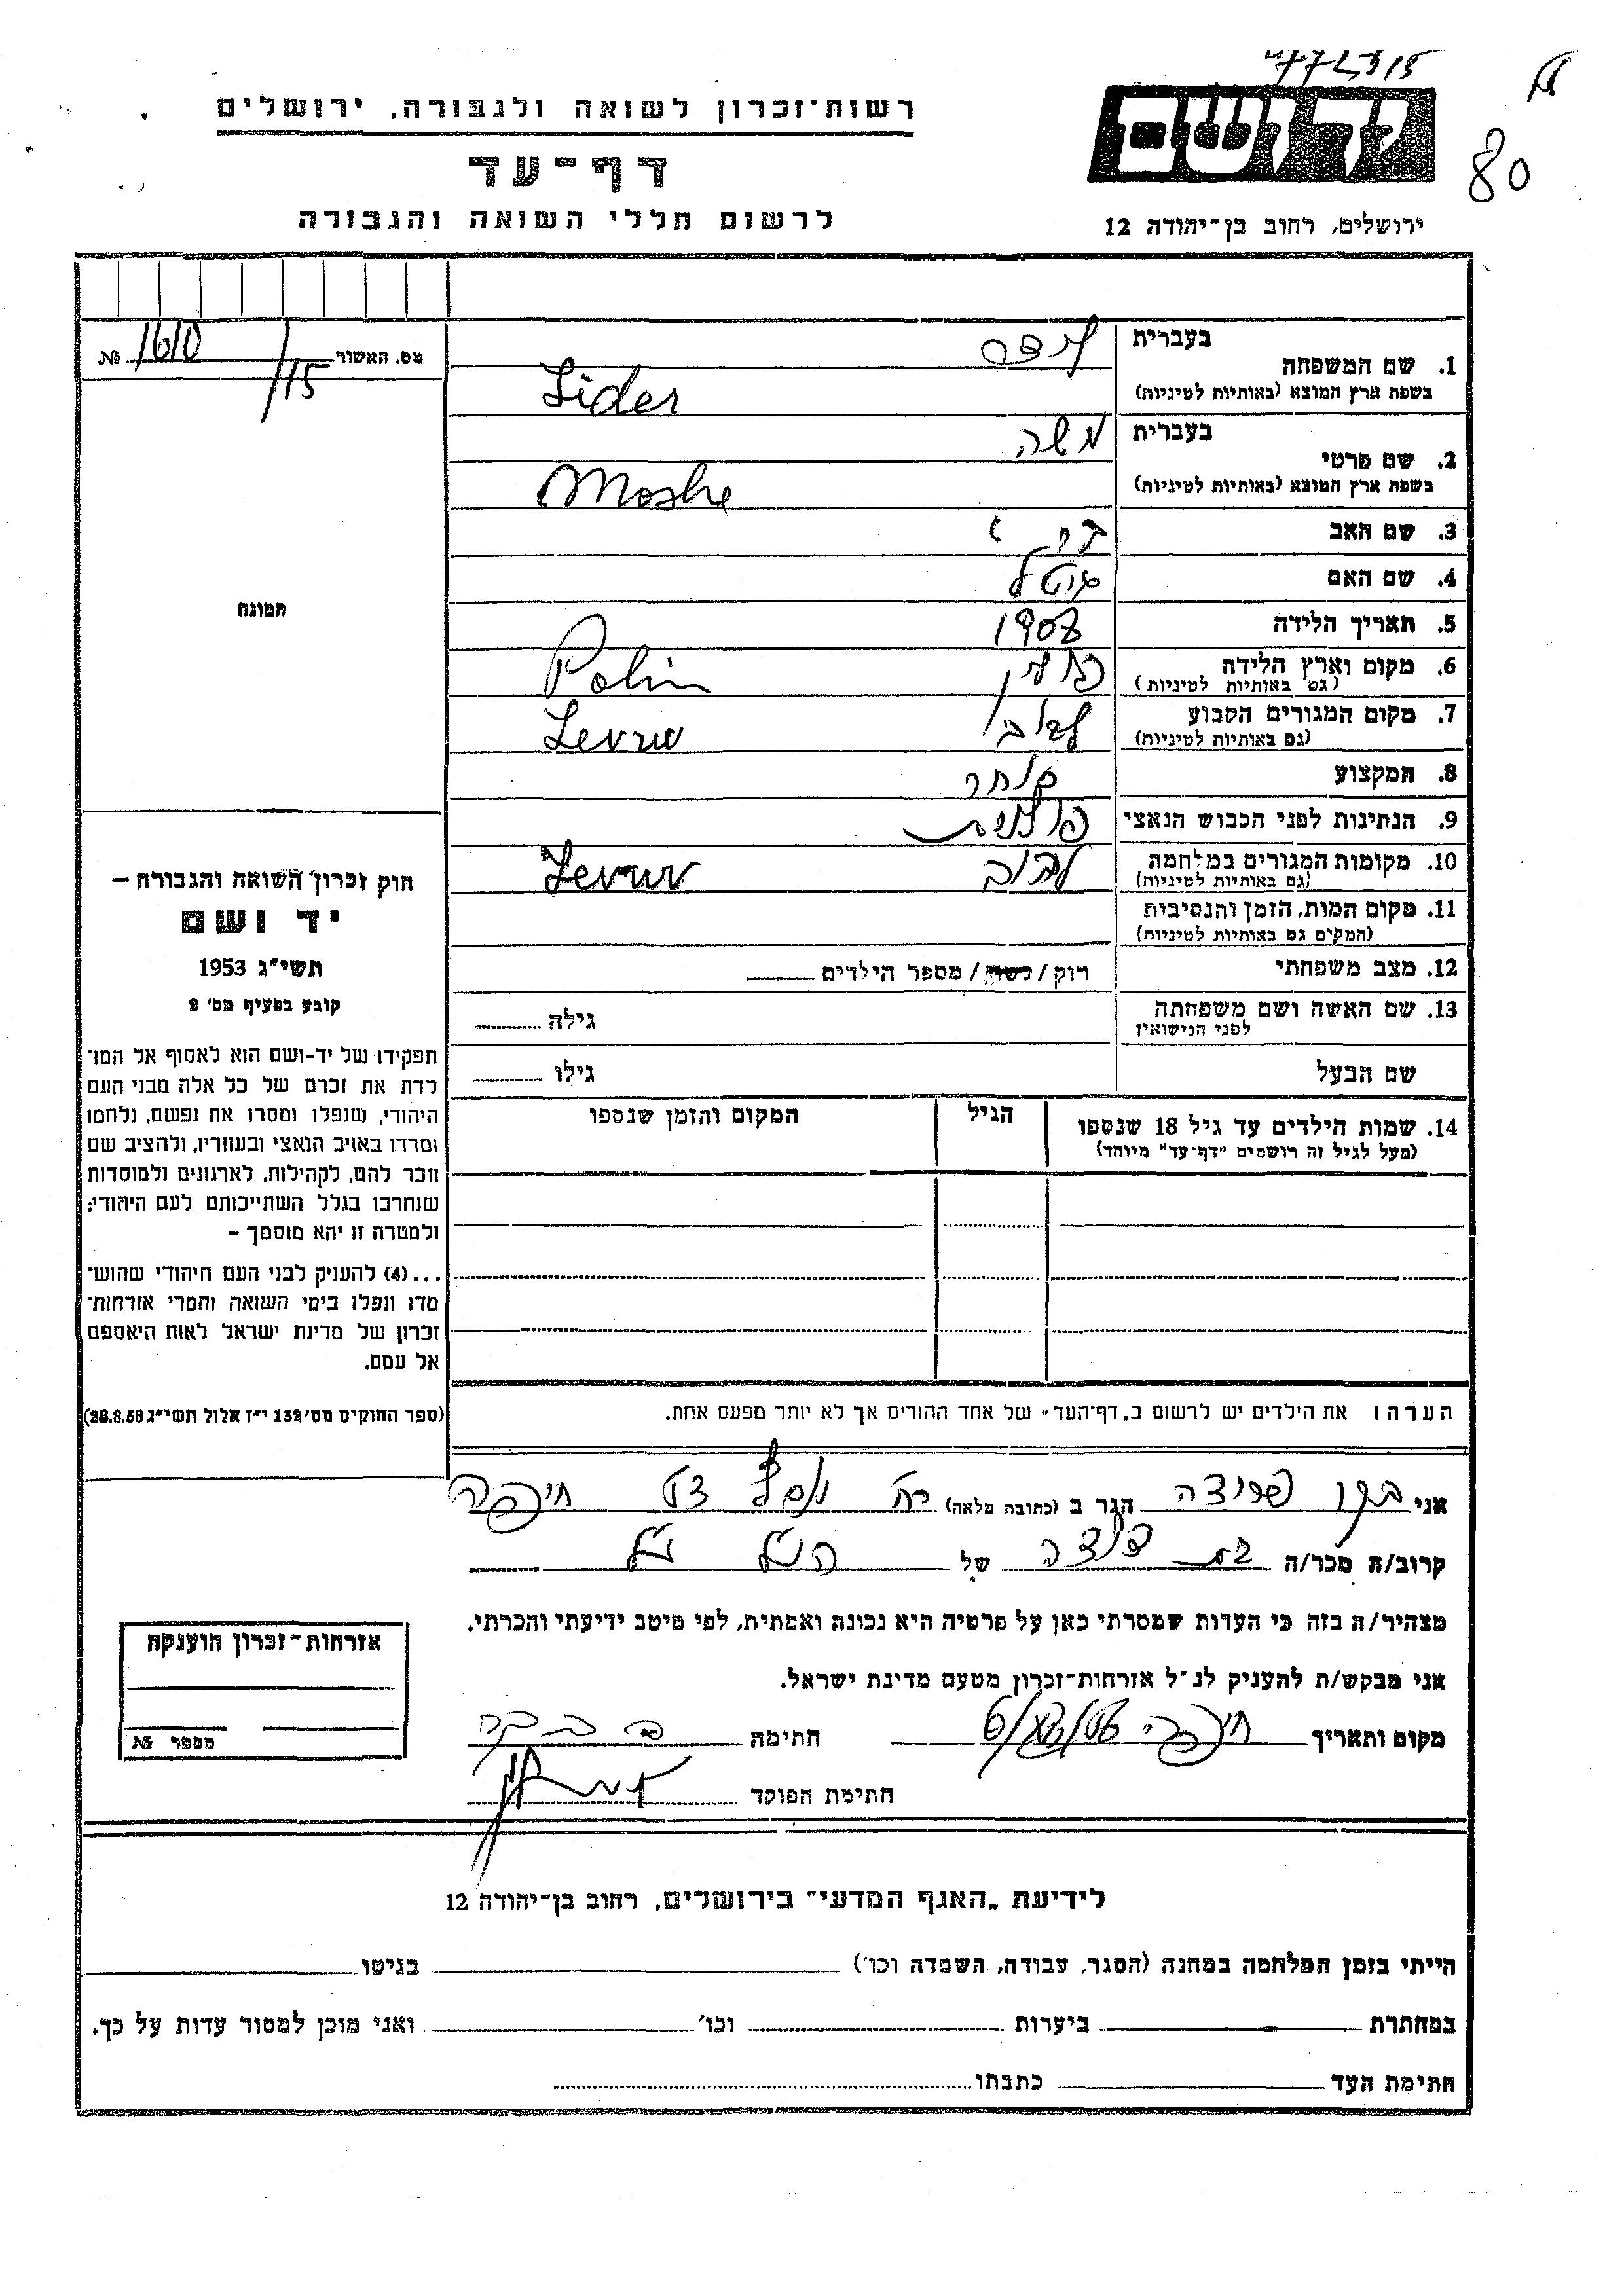 80
רשות־זכרון לשואה ולגבורה, ירושלים
דף־עד
לרשום חללי השואה והגבורה
יד ושם
ירושלים, רחוב בן־יהודה 12
מס. האשור 1610 №
115
תמונה
בעברית
1. שם המשפחה
בשפת ארץ המוצא (באותיות לטיניות) Lider
בעברית משה
2. שם פרטי
בשפת ארץ המוצא (באותיות לטיניות) Moshe
3. שם האב
4. שם האם
5. תאריך הלידה 1908
6. מקום וארץ הלידה פולין Polin
(גם באותיות לטיניות)
7. מקום המגורים הקבוע לבוב Levuv
(גם באותיות לטיניות)
8. המקצוע סוחר
9. הנתינות לפני הכבוש הנאצי פולנית
10. מקומות המגורים במלחמה לבוב Levuv
(גם באותיות לטיניות)
11. מקום המות, הזמן והנסיבות
(המקום גם באותיות לטיניות)
12. מצב משפחתי רוק / נשוי / מספר הילדים
13. שם האשה ושם משפחתה גילה
לפני הנישואין
שם הבעל גילו
14. שמות הילדים עד גיל 18 שנספו הגיל המקום והזמן שנספו
(מעל לגיל זה רושמים "דף־עד" מיוחד)
הערה: את הילדים יש לרשום ב„דף־העד" של אחד ההורים אך לא יותר מפעם אחת.
חוק זכרון השואה והגבורה –
יד ושם
תשי"ג 1953
קובע בסעיף מס' 2
תפקידו של יד־ושם הוא לאסוף אל המו־
לדת את זכרם של כל אלה מבני העם
היהודי, שנפלו ומסרו את נפשם, נלחמו
ומרדו באויב הנאצי ובעוזריו, ולהציב שם
וזכר להם, לקהילות, לארגונים ולמוסדות
שנחרבו בגלל השתייכותם לעם היהודי;
ולמטרה זו יהא מוסמך –
...(4) להעניק לבני העם היהודי שהוש־
מדו ונפלו בימי השואה והמרי אזרחות־
זכרון של מדינת ישראל לאות היאספם
אל עמם.
(ספר החוקים מס' 132 י"ז אלול תשי"ג 28.8.53)
אני הגר ב (כתובת מלאה) חיפה
קרוב/ה מכר/ה בת דודה של הנ"ל
מצהיר/ה בזה כי העדות שמסרתי כאן על פרטיה היא נכונה ואמתית, לפי מיטב ידיעתי והכרתי.
אני מבקש/ת להעניק לנ"ל אזרחות־זכרון מטעם מדינת ישראל.
מקום ותאריך חיפה חתימה
חתימת הפוקד
אזרחות־זכרון הוענקה
מספר №
לידיעת „האגף המדעי" בירושלים, רחוב בן־יהודה 12
הייתי בזמן המלחמה במחנה (הסגר, עבודה, השמדה וכו') בגיטו
במחתרת ביערות וכו' ואני מוכן למסור עדות על כך.
חתימת העד כתבתו